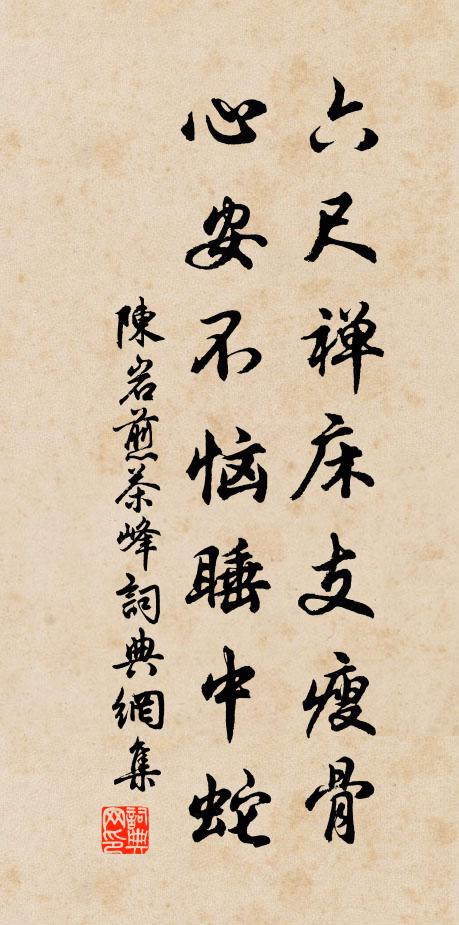 六尺禅床支瘦骨
心安不恼睡中蛇
陳岩煎茶峰詞典網集
詞典网印